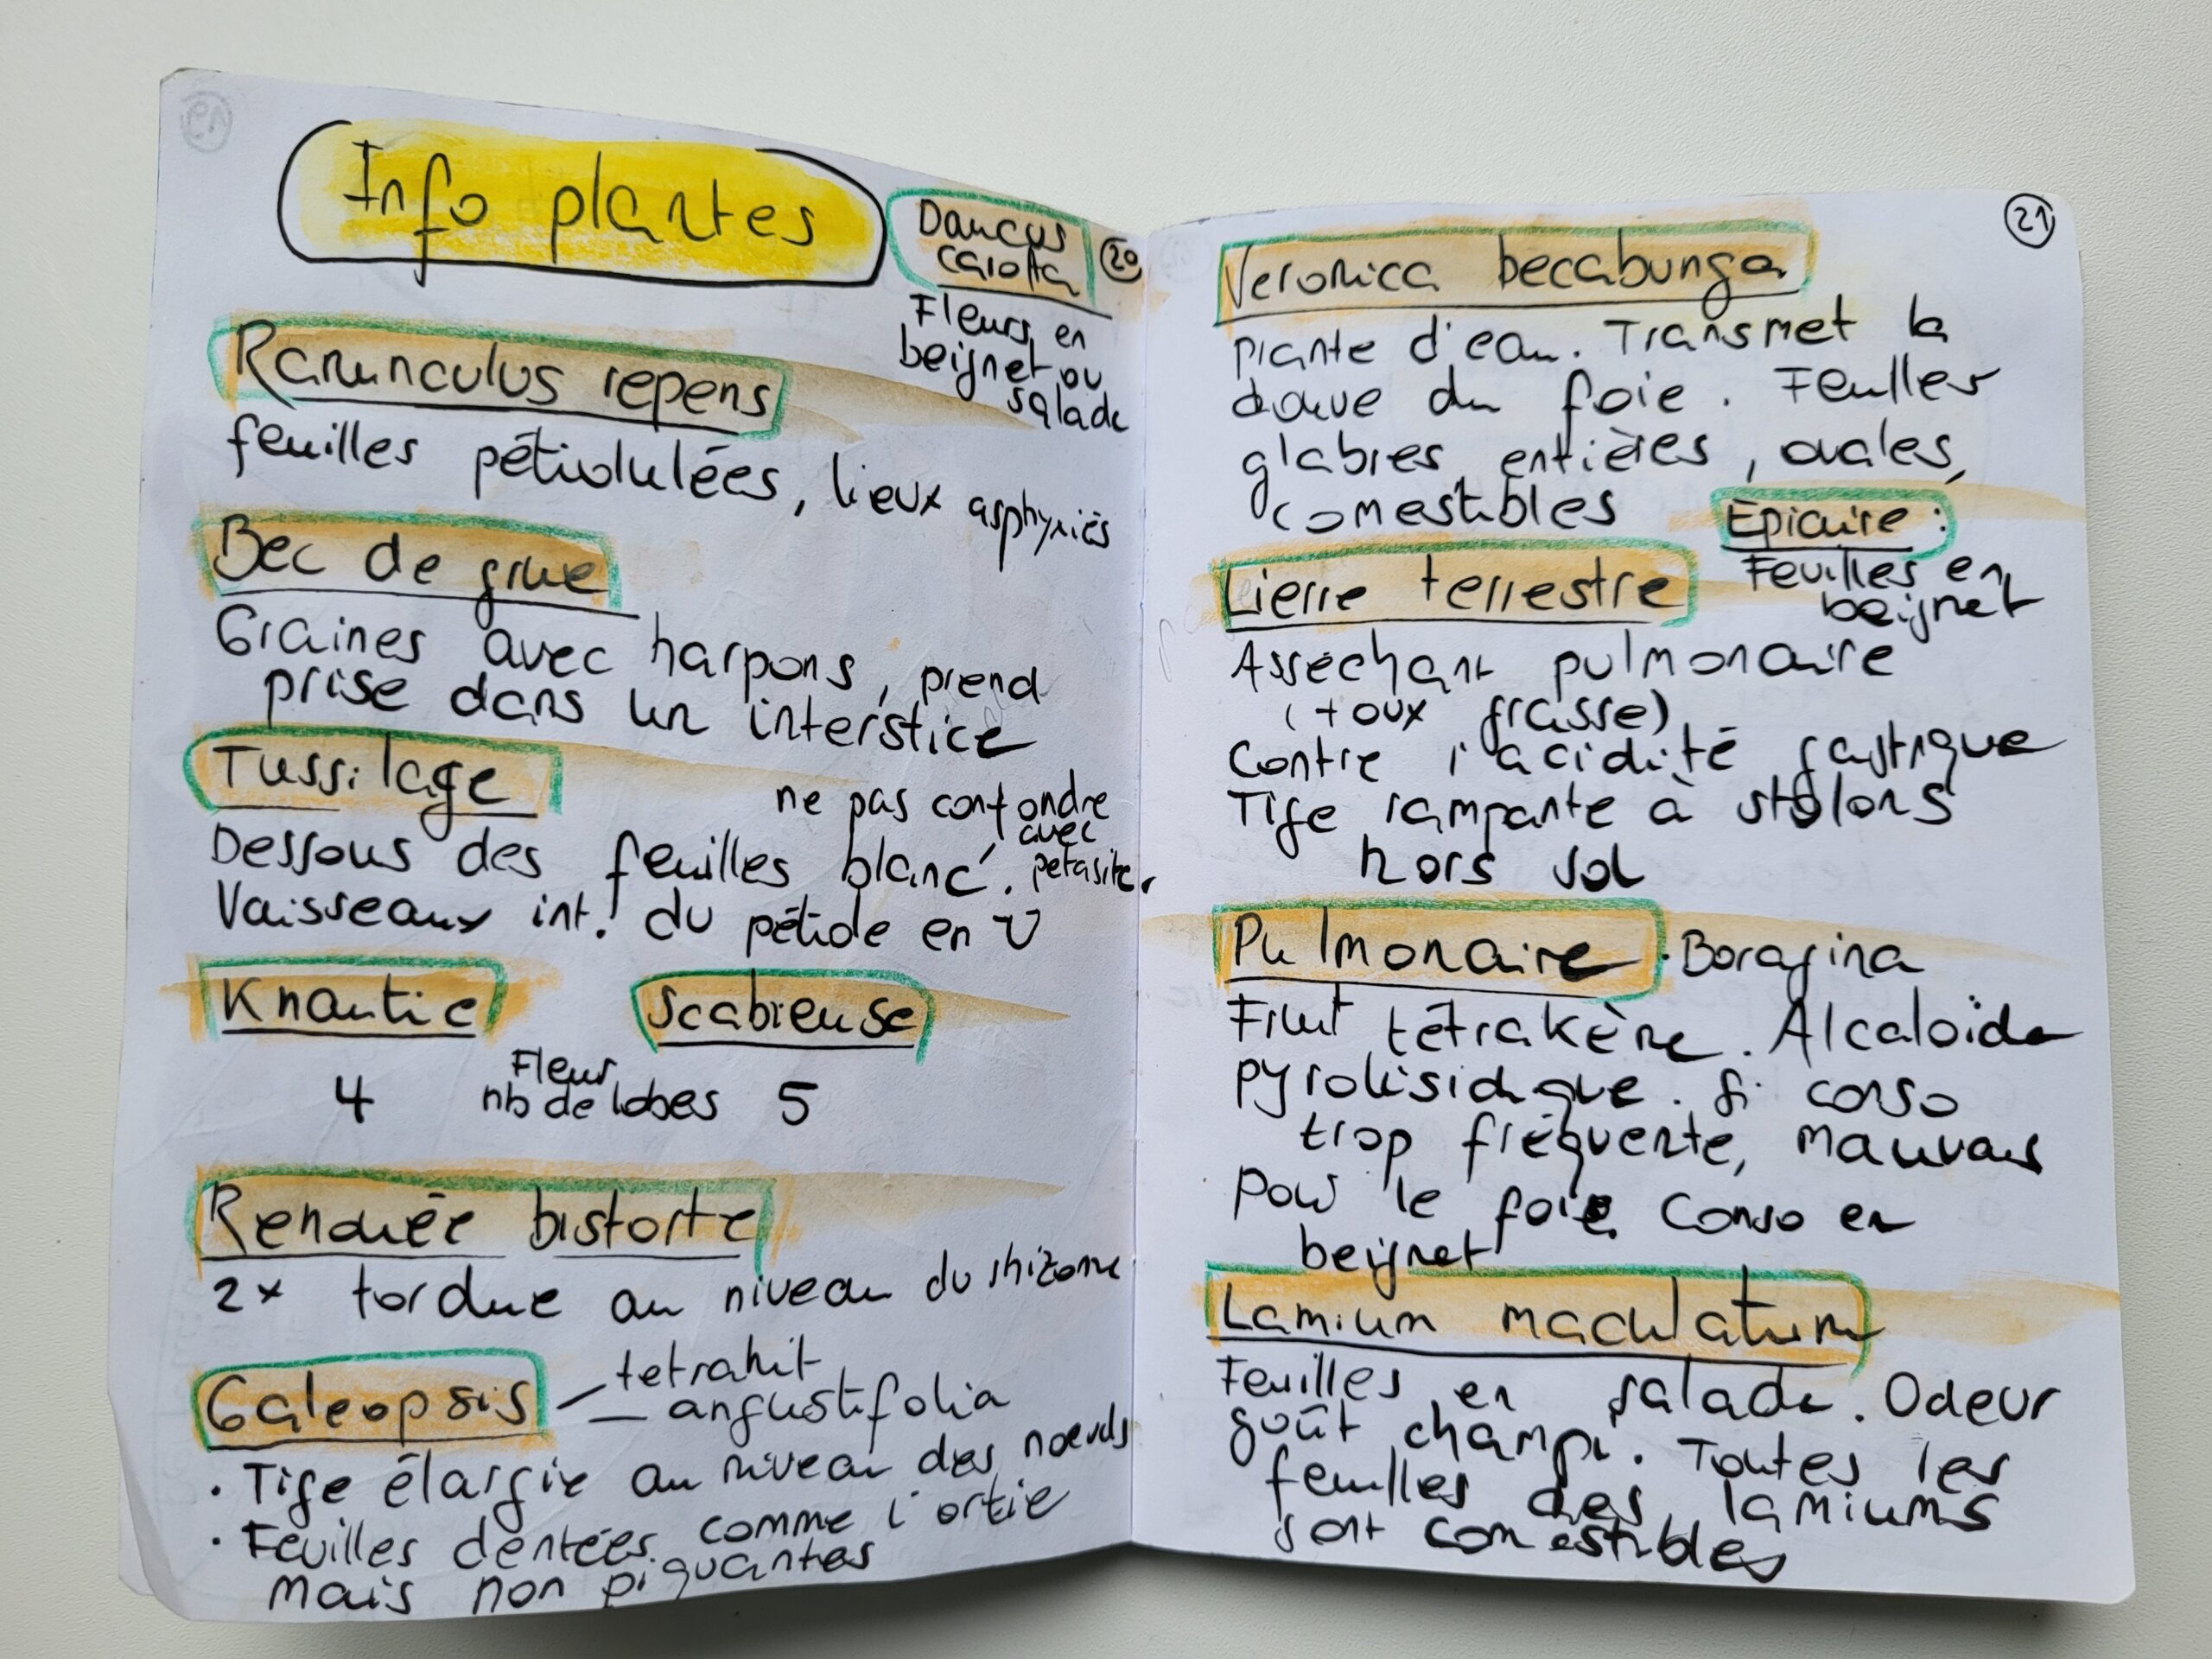 Info plantes
20
Daucus
carotta
Fleurs en
beignet ou
salade
Ranunculus repens
feuilles pétiolulées, lieux asphyxiés
Bec de grue
Graines avec harpons, prend
prise dans un interstice
Tussilage
ne pas confondre
avec
petasites
Dessous des feuilles blanc.
Vaisseaux int. du pétiole en U
Knautie
Scabieuse
4
Fleur
nb de lobes
5
Renouée bistorte
2x tordue au niveau du rhizome
Galeopsis
tetrahit
angustifolia
· Tige élargie au niveau des noeuds
· Feuilles dentées comme l'ortie
mais non piquantes
21
Veronica beccabunga
Plante d'eau. Transmet la
douve du foie. Feuilles
glabres, entières, ovales,
comestibles
Epiaire :
Feuilles en
beignet
Lierre terrestre
Asséchant pulmonaire
(toux grasse)
Contre l'acidité gastrique
Tige rampante à stolons
hors sol
Pulmonaire · Boragina
Fruit tétrakène. Alcaloïde
pyrolisidique. Si conso
trop fréquente, mauvais
pour le foie. Conso en
beignet
Lamium maculatum
Feuilles en salade. Odeur
goût champi. Toutes les
feuilles des lamiums
sont comestibles